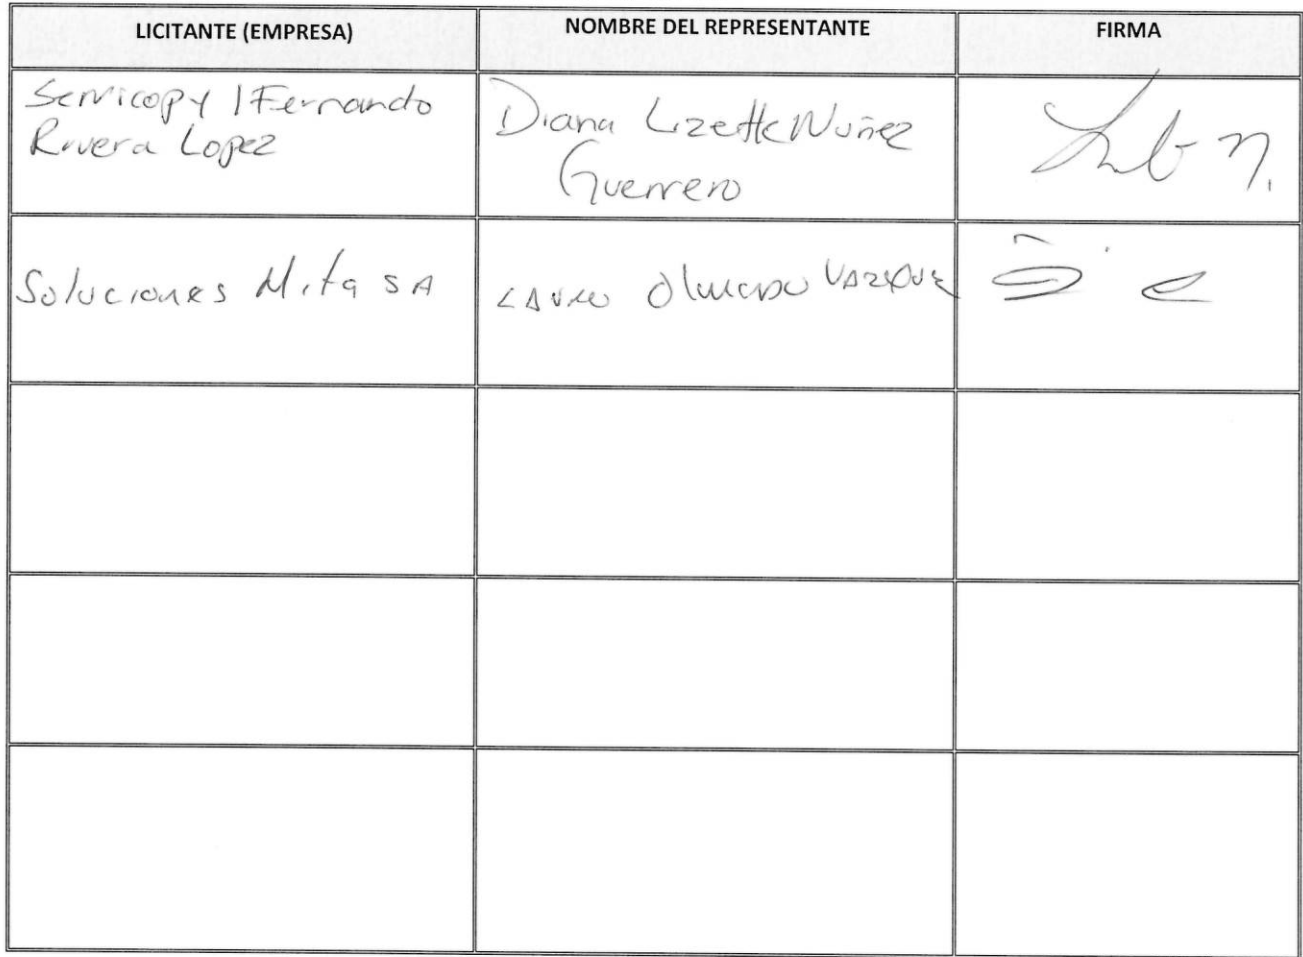 LICITANTE (EMPRESA) NOMBRE DEL REPRESENTANTE FIRMA
Servicopy / Fernando
Rivera Lopez
Diana Lizette Nuñez
Guerrero
Soluciones Mita SA